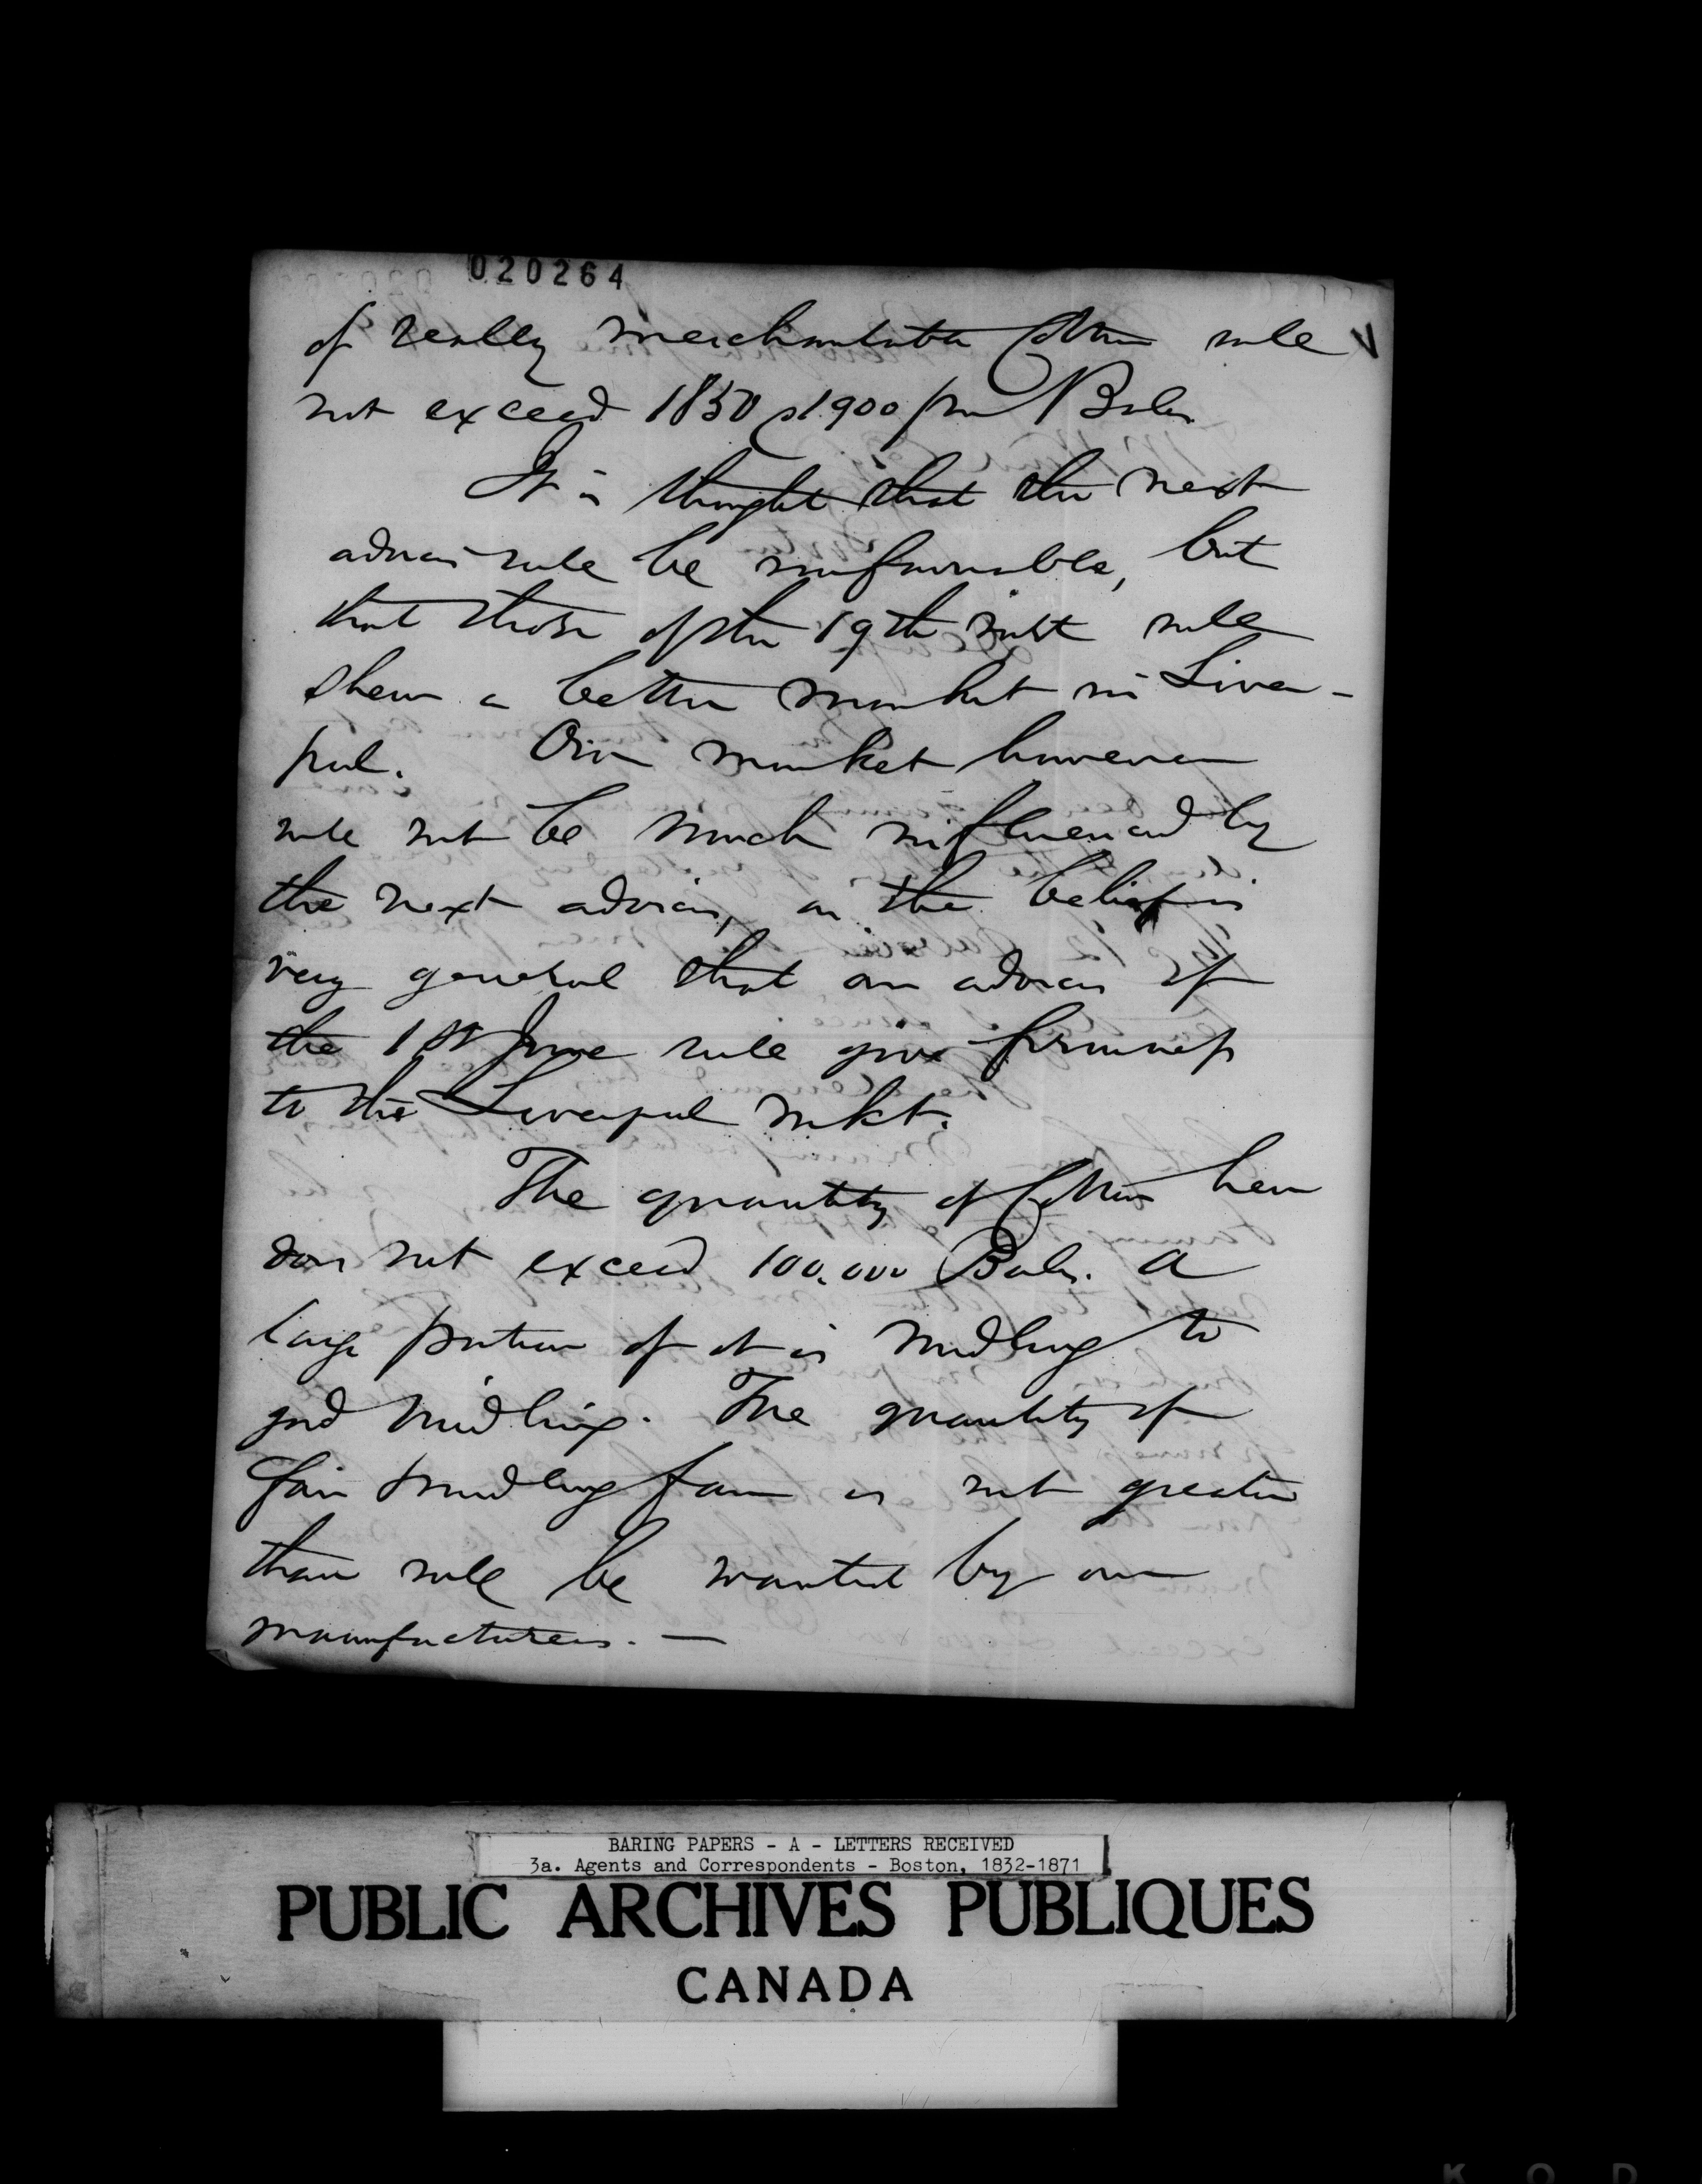 020264
of really merchantable Cotton will
not exceed 1850 a 1900 Bales
It is thought that the next
advices will be unfavorable, but
that those of the 19th inst will
shew a better market in Liver-
pool. Our market however
will not be much influenced by
the next advices, as the belief is
very general that our advices of
the 1st June will give firmness
to the Liverpool mkt.
The quantity of Cotton here
does not exceed 100.000 Bales. A
large portion of it is Midling to
good Midling. The quantity of
fair Midling fair is not greater
than will be wanted by our
manufacturers. —
BARING PAPERS - A - LETTERS RECEIVED
3a. Agents and Correspondents - Boston, 1832-1871
PUBLIC ARCHIVES PUBLIQUES
CANADA
K O D